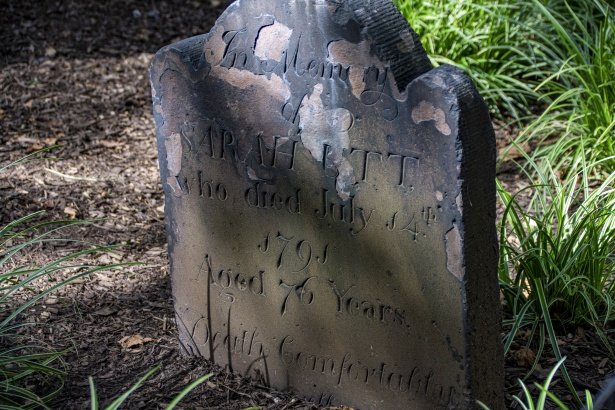 In Memory
of
SARAH
who died July 14th
1791
Aged 76 Years.
Death Comfortably